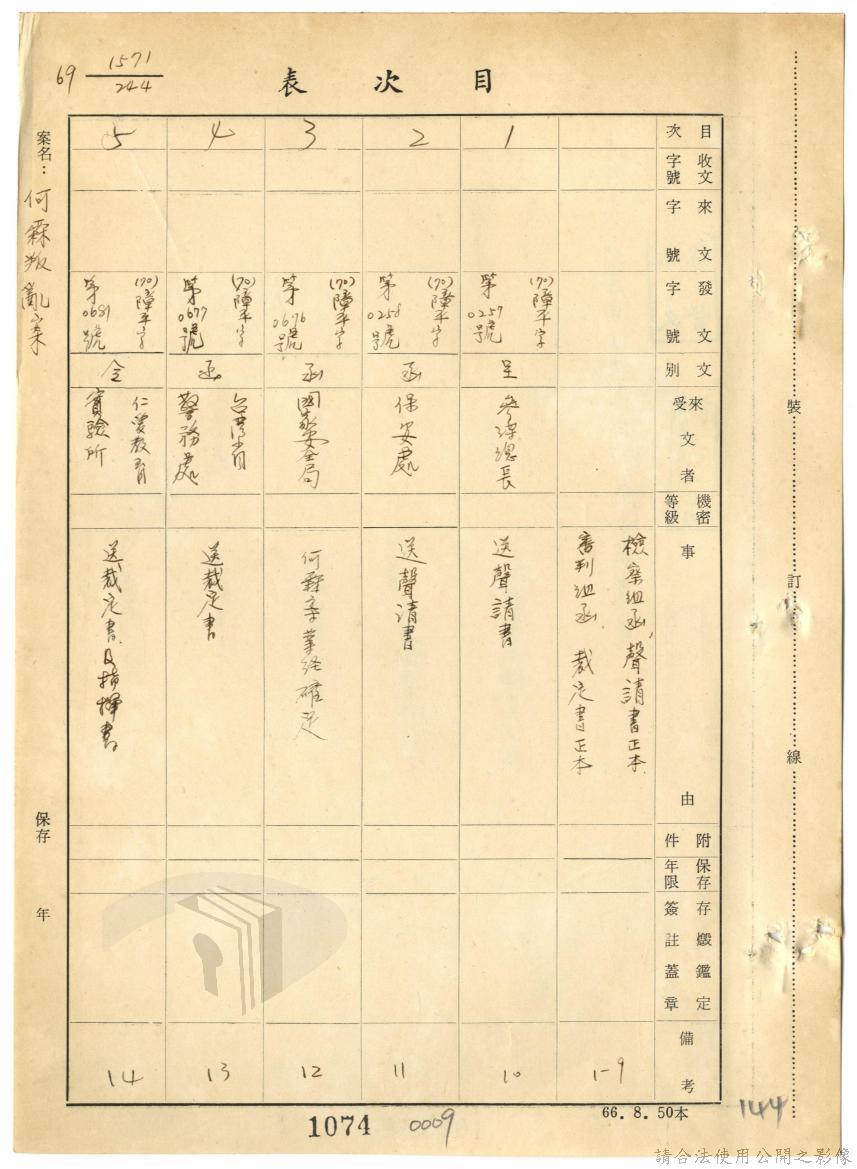 69 1571/244
目次表
案名：何霖叛亂案
保存　年
目次
收文字號
來文字號
發文字號
文別
來受文者
機密等級
事由
附件
保存年限
存燬鑑定簽註蓋章
備考
檢察組函，聲請書正本
審判組函，裁定書正本
1-9
1
(70)障平字
第0257號
呈
參謀總長
送聲請書
10
2
(70)障平字
第0258號
函
保安處
送聲請書
11
3
(70)障平字
第0676號
函
國家安全局
何霖案業經確定
12
4
(70)障平字
第0677號
函
台灣省
警務處
送裁定書
13
5
(70)障平字
第0681號
令
仁愛教育
實驗所
送裁定書及指揮書
14
裝訂線
66.8.50本
144
1074
0009
請合法使用公開之影像